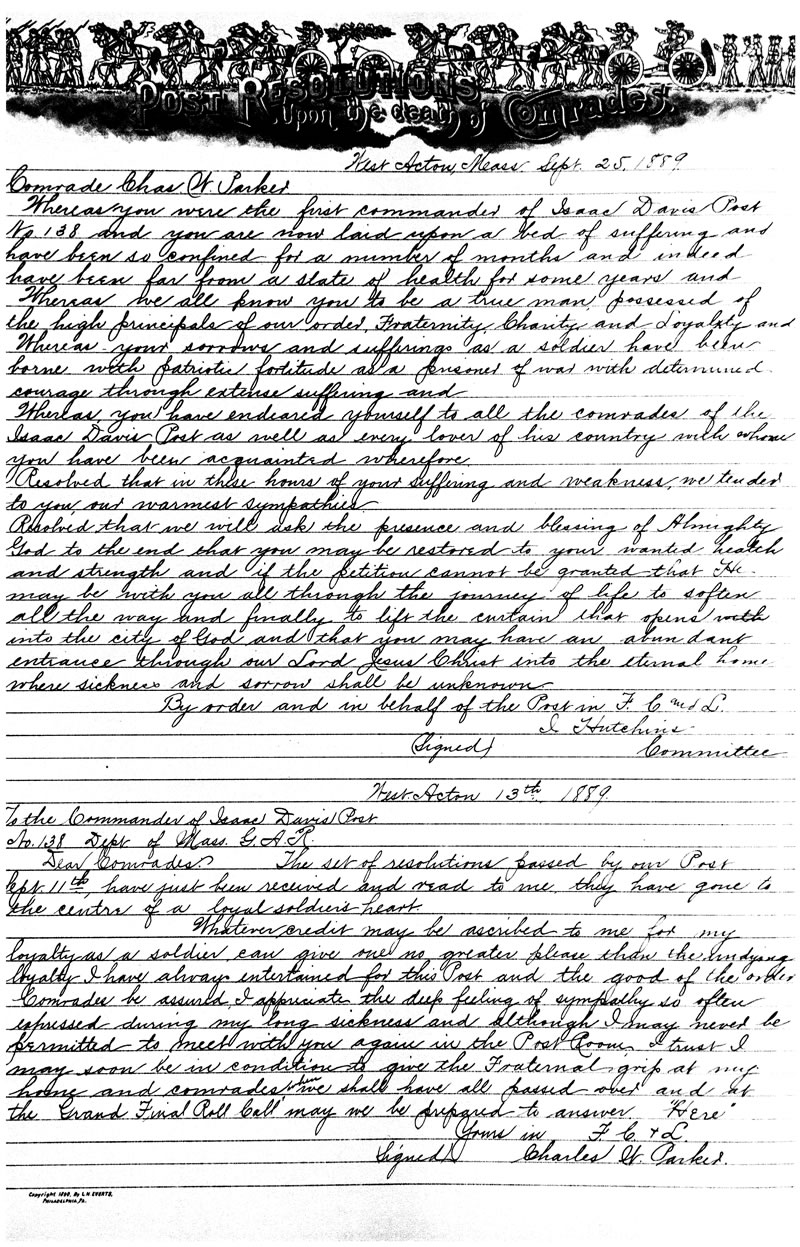 Post Resolutions
upon the death of Comrades.
West Acton, Mass. Sept. 25, 1889.
Comrade Chas W. Parker
Whereas you were the first commander of Isaac Davis Post
No 138 and you are now laid upon a bed of suffering and
have been so confined for a number of months and indeed
have been far from a state of health for some years and
Whereas we all know you to be a true man, possessed of
the high principals of our order, Fraternity, Charity and Loyalty and
Whereas your sorrows and sufferings as a soldier have been
borne with patriotic fortitude as a prisoner of war with determined
courage through extense suffering and
Whereas you have endeared yourself to all the comrades of the
Isaac Davis Post as well as every lover of his country with whom
you have been acquainted wherefore
Resolved that in these hours of your suffering and weakness, we tender
to you, our warmest sympathies
Resolved, that we will ask the presence and blessing of Almighty
God to the end that you may be restored to your wanted health
and strength and if the petition cannot be granted that He
may be with you all through the journey of life to soften
all the way and finally to lift the curtain that opens with
into the city of God and that you may have an abundant
entrance through our Lord Jesus Christ into the eternal home
where sickness and sorrow shall be unknown
By order and in behalf of the Post in F. C and L.
I Hutchins
(Signed) Committee
West Acton 13th 1889.
To the Commander of Isaac Davis Post
No. 138 Dept of Mass. G.A.R.
Dear Comrades. The set of resolutions passed by our Post
Sept 11th, have just been received and read to me, they have gone to
the centre of a loyal soldier's heart.
Whatever credit may be ascribed to me for my
loyalty as a soldier, can give one no greater please than the undying
loyalty I have always entertained for this Post and the good of the order
Comrades be assured, I appreciate the deep feeling of sympathy so often
expressed during my long sickness and although I may never be
permitted to meet with you again in the Post Room, I trust I
may soon be in condition to give the Fraternal grip at my
home and comrades when we shall have all passed over and at
the Grand Final Roll Call may we be prepared to answer "Here"
Yours in F. C. & L.
Signed) Charles W. Parker.
Copyright 1890, By L.H. Everts,
Philadelphia, Pa.